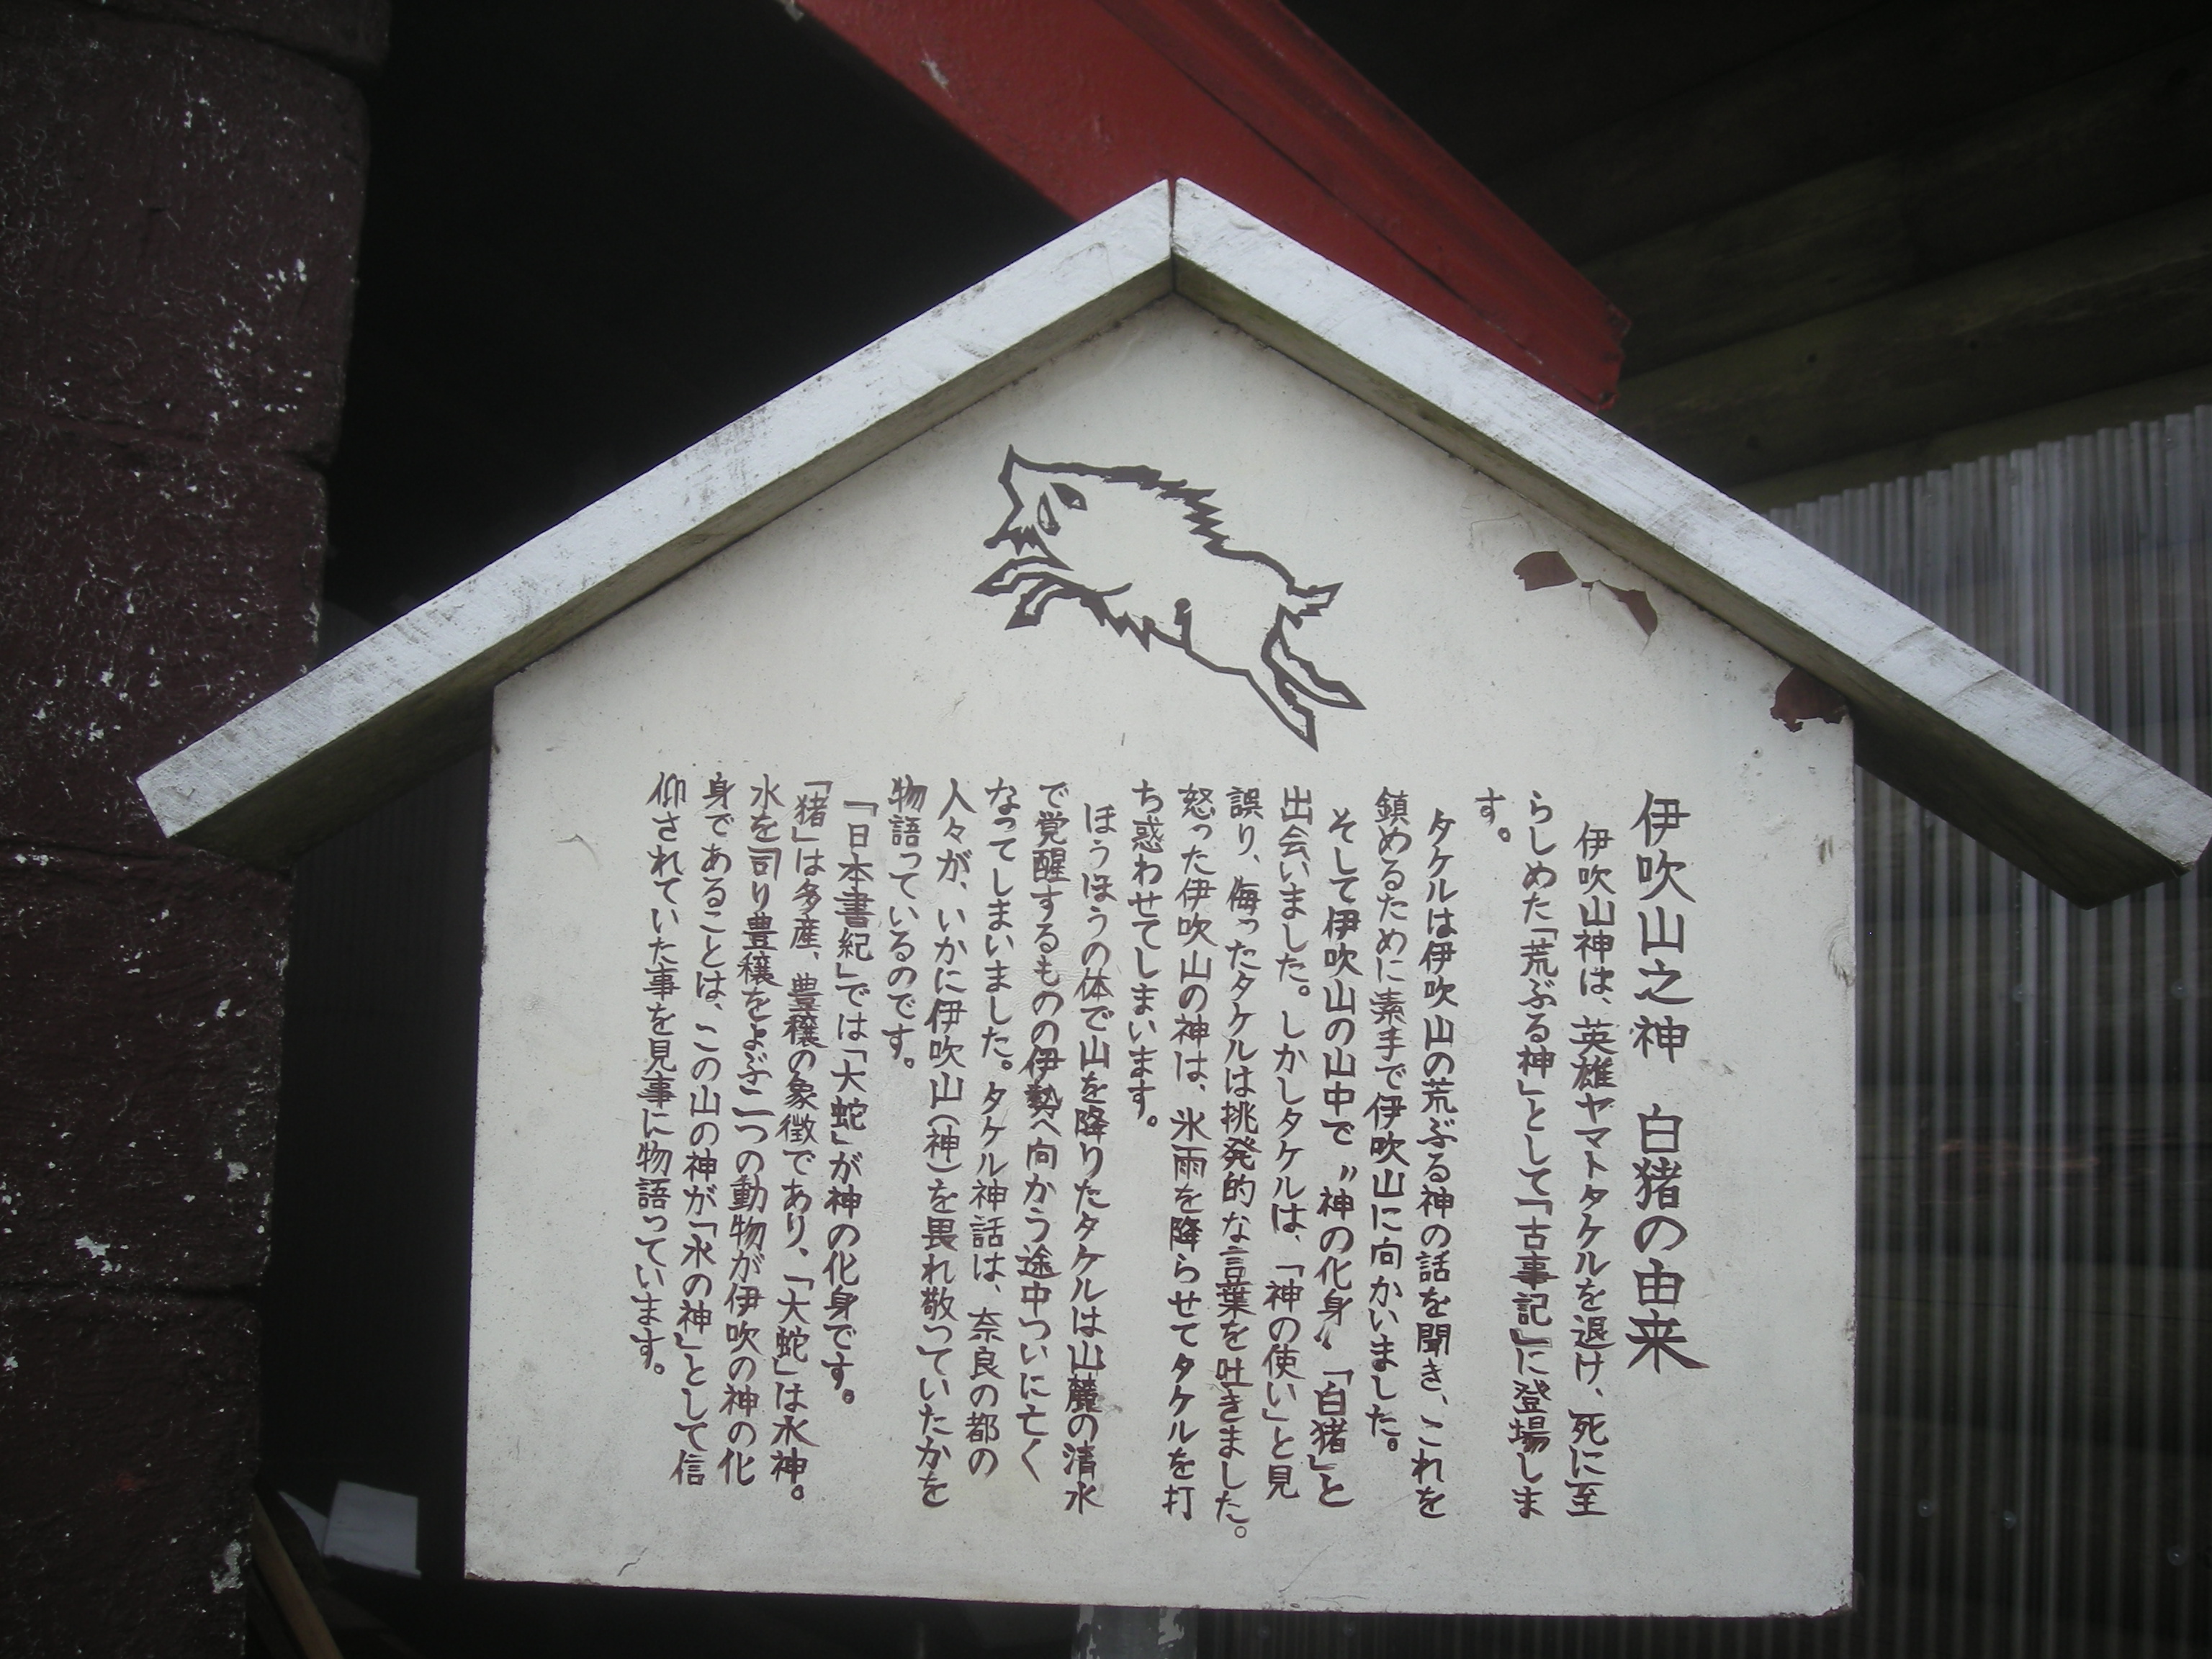 伊吹山之神　白猪の由来
伊吹山神は、英雄ヤマトタケルを退け、死に至
らしめた「荒ぶる神」として「古事記」に登場しま
す。
タケルは伊吹山の荒ぶる神の話を聞き、これを
鎮めるために素手で伊吹山に向かいました。
そして伊吹山の山中で〝神の化身〟「白猪」と
出会いました。しかしタケルは、「神の使い」と見
誤り、侮ったタケルは挑発的な言葉を吐きました。
怒った伊吹山の神は、氷雨を降らせてタケルを打
ち惑わせてしまいます。
ほうほうの体で山を降りたタケルは山麓の清水
で覚醒するものの伊勢へ向かう途中ついに亡く
なってしまいました。タケル神話は、奈良の都の
人々が、いかに伊吹山（神）を畏れ敬っていたかを
物語っているのです。
「日本書紀」では「大蛇」が神の化身です。
「猪」は多産、豊穣の象徴であり、「大蛇」は水神。
水を司り豊穣をよぶ二つの動物が伊吹の神の化
身であることは、この山の神が「水の神」として信
仰されていた事を見事に物語っています。